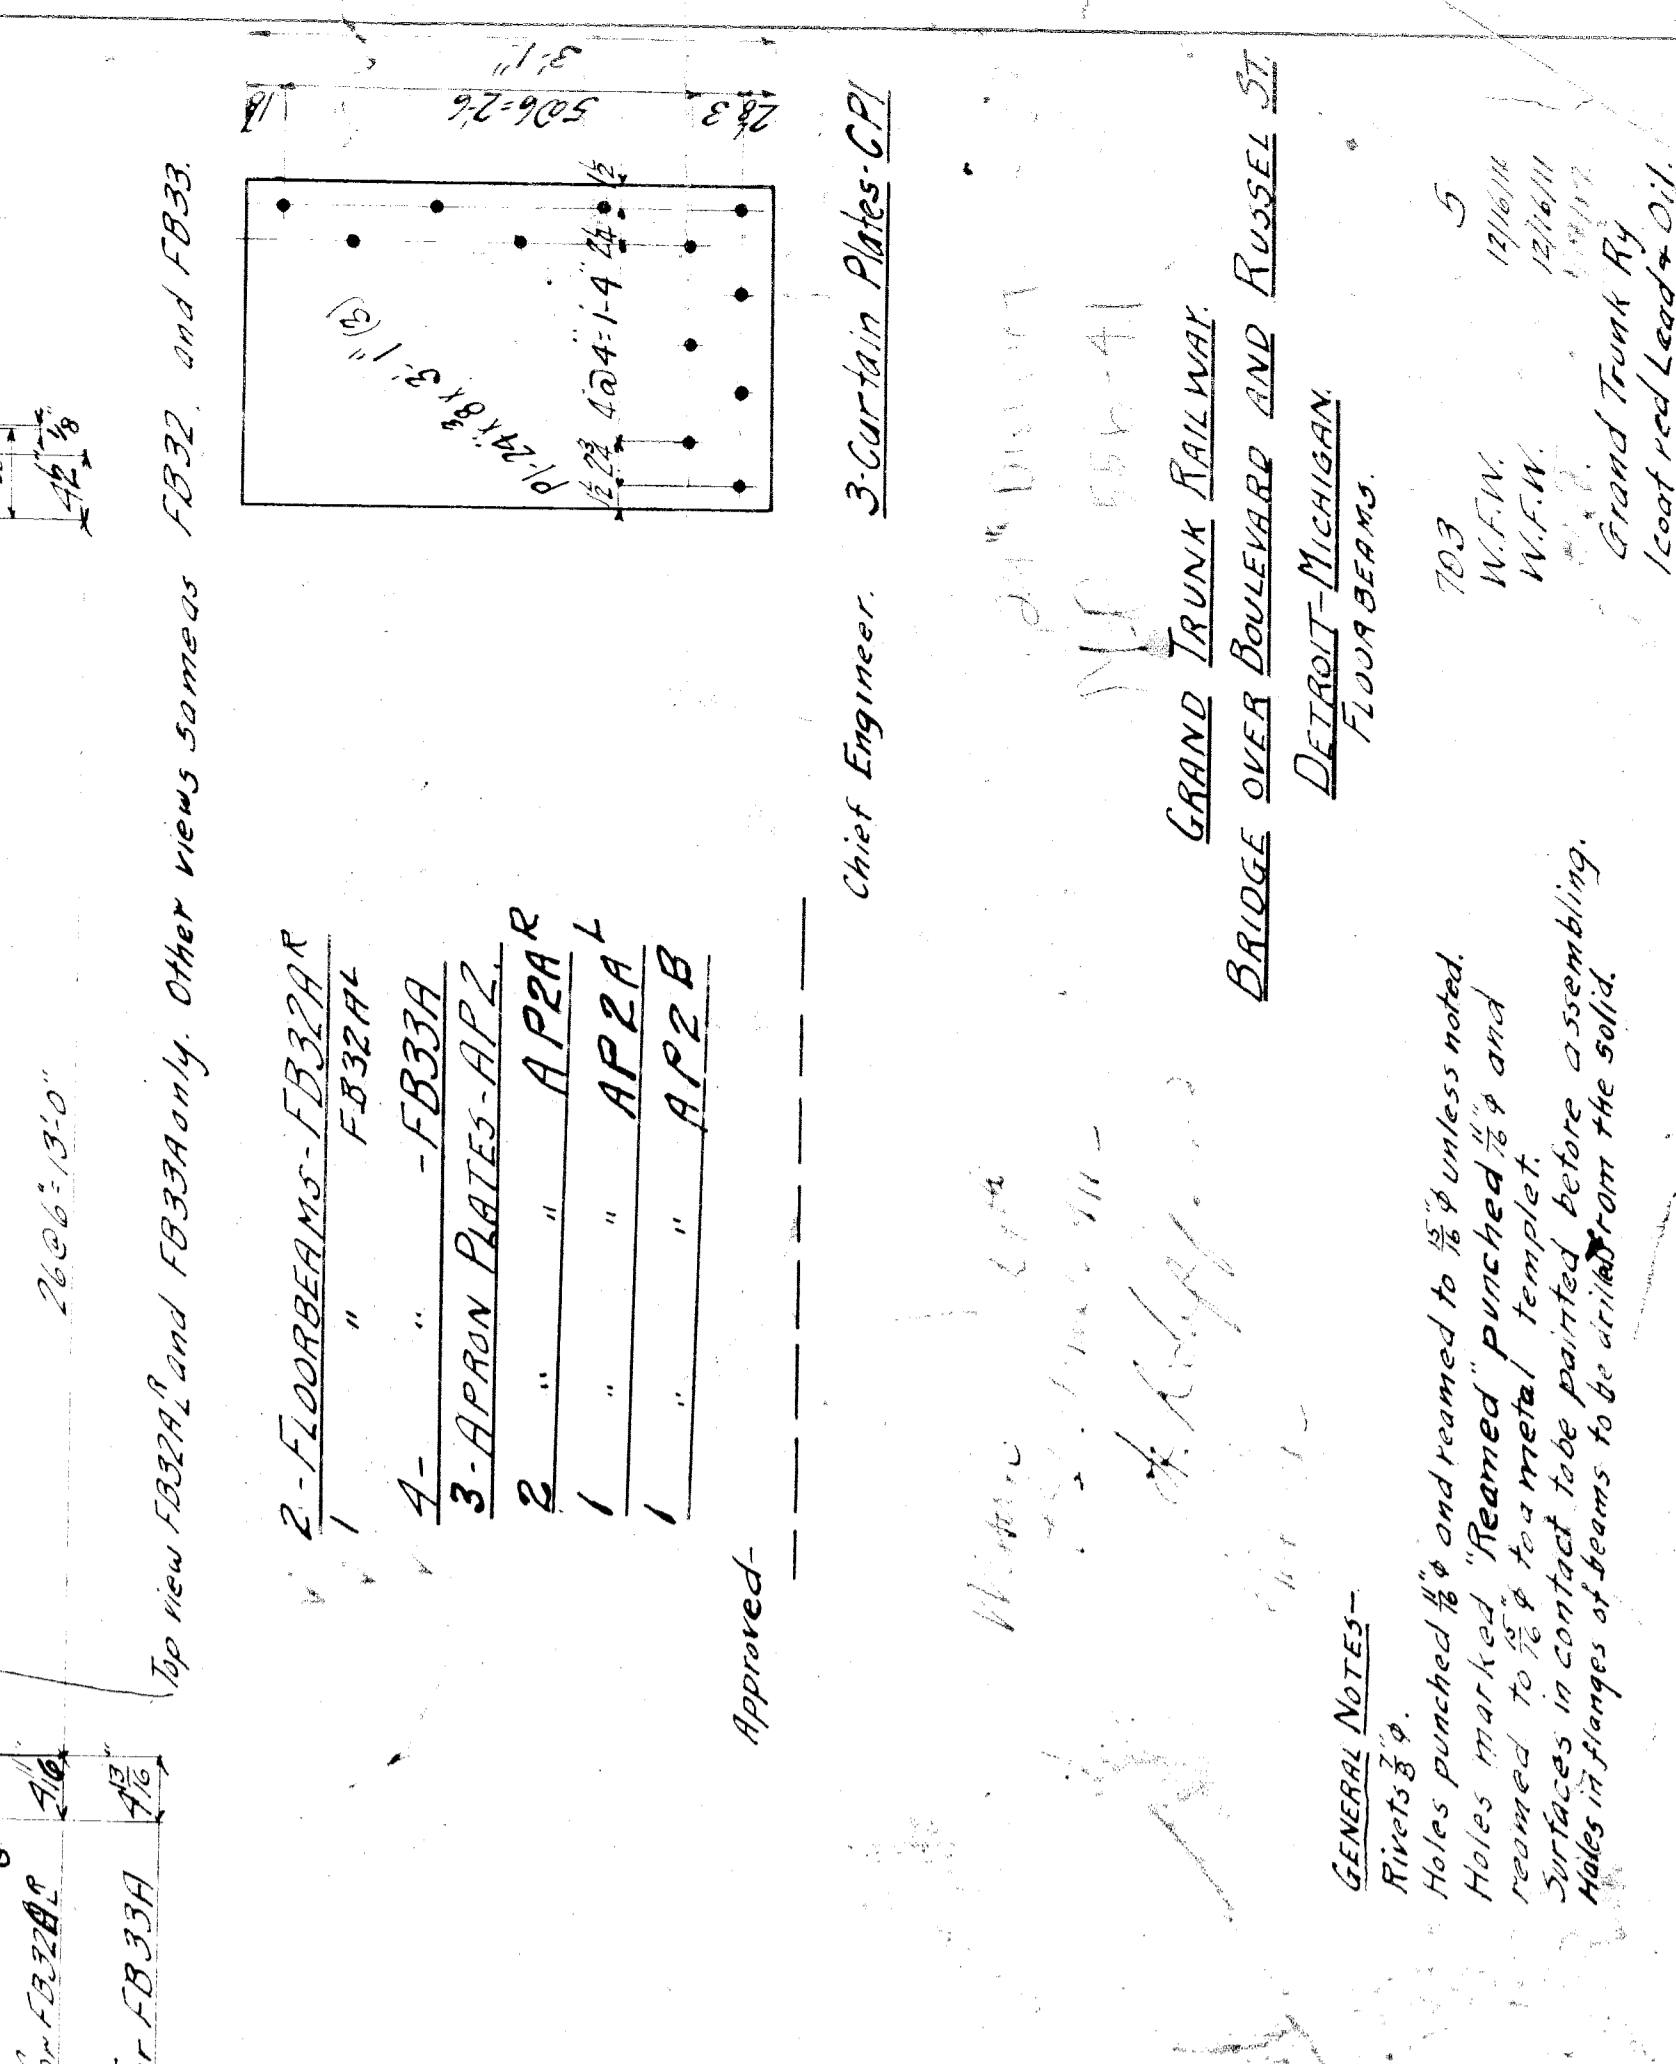 4 1/2"
1/8"
26@6"=13'-0"
4 1/16"
4 13/16"
FB32A R L
FB33A
Top view FB32A R L and FB33A only. Other views same as FB32 and FB33.
2-FLOORBEAMS-FB32A R
1 " FB32A L
4- " -FB33A
3-APRON PLATES-AP2.
2 " " AP2A R
1 " " AP2A L
1 " " AP2B
Approved-
Chief Engineer.
3'-1"
5@6=2'-6
3
2 1/8
Pl-24"x3/8x3'-1" (3)
1 1/2 2 3/4 4@4=1'-4" 2 1/4 1 1/2
3-Curtain Plates-CP1
GRAND TRUNK RAILWAY.
BRIDGE OVER BOULEVARD AND RUSSEL ST.
DETROIT-MICHIGAN.
FLOORBEAMS.
GENERAL NOTES-
Rivets 7/8" φ.
Holes punched 11/16" φ and reamed to 15/16" φ unless noted.
Holes marked "Reamed" punched 11/16" φ and
reamed to 15/16" φ to a metal templet.
Surfaces in contact to be painted before assembling.
Holes in flanges of beams to be drilled from the solid.
703 5
W.F.W. 12/16/11
W.F.W. 12/16/11
Grand Trunk Ry
1 coat red Lead & Oil.